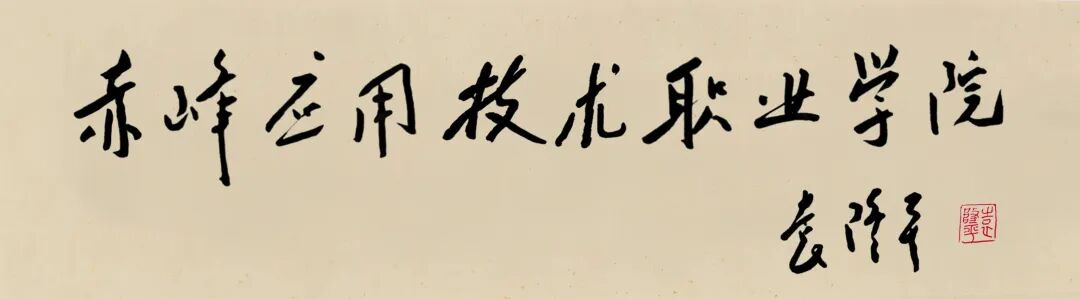 赤峰应用技术职业学院
袁隆平
袁隆平